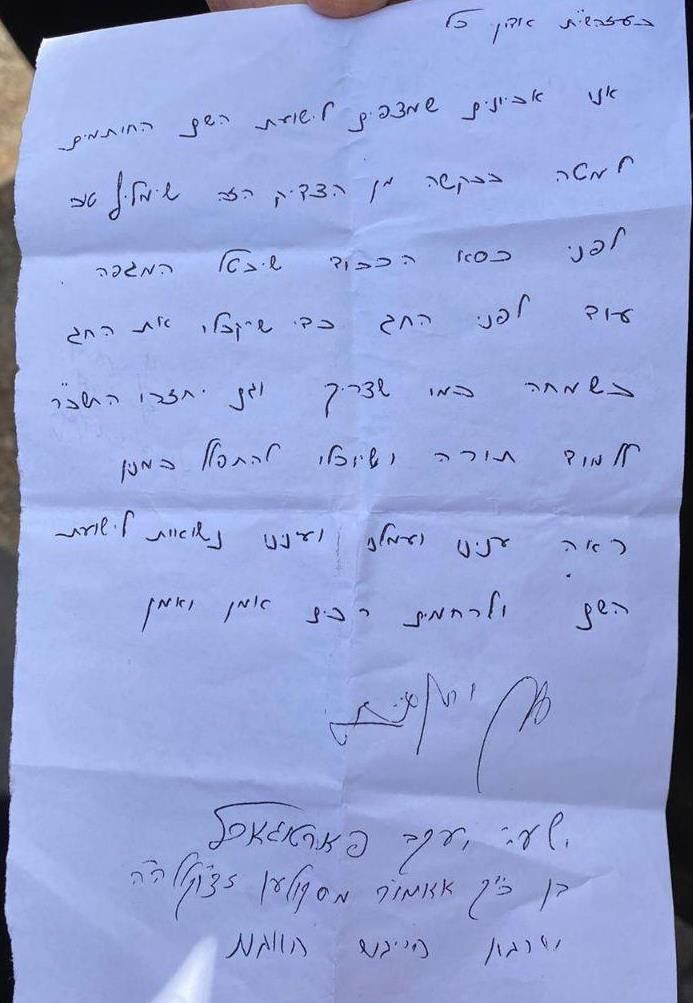 בעזהשי"ת אדון כל
אנו אביונים שמצפים לישועת השם החותמים
למטה בבקשה מן הצדיק הזה שימליץ טוב
לפני כסא הכבוד שיבטל המגפה .
עוד לפני החג כדי שיקבלו את החג
בשמחה כמו שצריך וגם יחזרו התשב"ר
ללמוד תורה ושיוכלו להתפלל במנין
ראה ענינו ועמלנו וענינו נשואות לישועת
השם ולרחמים רבים אמן ואמן
ישעי' יעקב פארטוגאל
בן כ"ק אאמו"ר מסקולען זצוקללה"ה